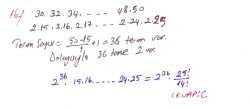 16) 30.32.34.....48.50
2.15.2.16.2.17.....2.24.2.25
Terim Sayısı = 50-15 / 1 + 1 = 36 terim var.
Dolayısıyla 36 tane 2 var.
2³⁶. 15.16.....24.25 = 2³⁶. 25! / 14!
CEVAP: C